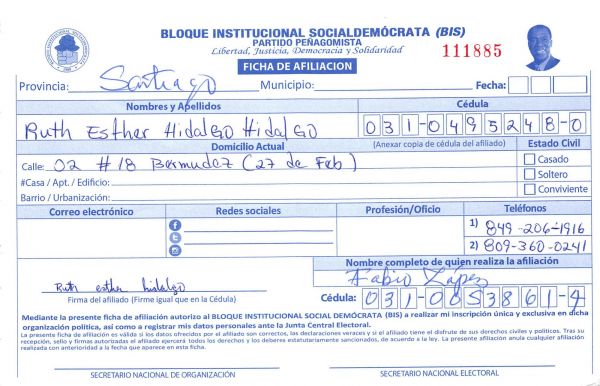 BLOQUE INSTITUCIONAL SOCIALDEMÓCRATA (BIS)
PARTIDO PEÑAGOMISTA
Libertad, Justicia, Democracia y Solidaridad
111885
FICHA DE AFILIACION
Provincia: Santiago Municipio: Fecha:
Nombres y Apellidos Cédula
Ruth Esther Hidalgo Hidalgo 031-0495248-0
Domicilio Actual (Anexar copia de cédula del afiliado) Estado Civil
Calle: 02 #18 Bermudez (27 de Feb) Casado
#Casa / Apt. / Edificio: Soltero
Barrio / Urbanización: Conviviente
Correo electrónico Redes sociales Profesión/Oficio Teléfonos
1) 849-206-1916
2) 809-360-0241
Nombre completo de quien realiza la afiliación
Ruth esther hidalgo Fabio López
Firma del afiliado (Firme igual que en la Cédula) Cédula: 031-0053861-4
Mediante la presente ficha de afiliación autorizo al BLOQUE INSTITUCIONAL SOCIAL DEMÓCRATA (BIS) a realizar mi inscripción única y exclusiva en dicha
organización política, así como a registrar mis datos personales ante la Junta Central Electoral.
La presente ficha de afiliación es válida si los datos ofrecidos por el afiliado son correctos, las declaraciones veraces y si el afiliado tiene el disfrute de sus derechos civiles y políticos. Tras su
recepción, sello y firmas autorizadas el afiliado ejercerá todos los derechos y los deberes estatutariamente sancionados, de acuerdo a la ley. La presente afiliación anula cualquier afiliación
realizada con anterioridad a la fecha que aparece en esta ficha.
SECRETARIO NACIONAL DE ORGANIZACIÓN SECRETARIO NACIONAL ELECTORAL